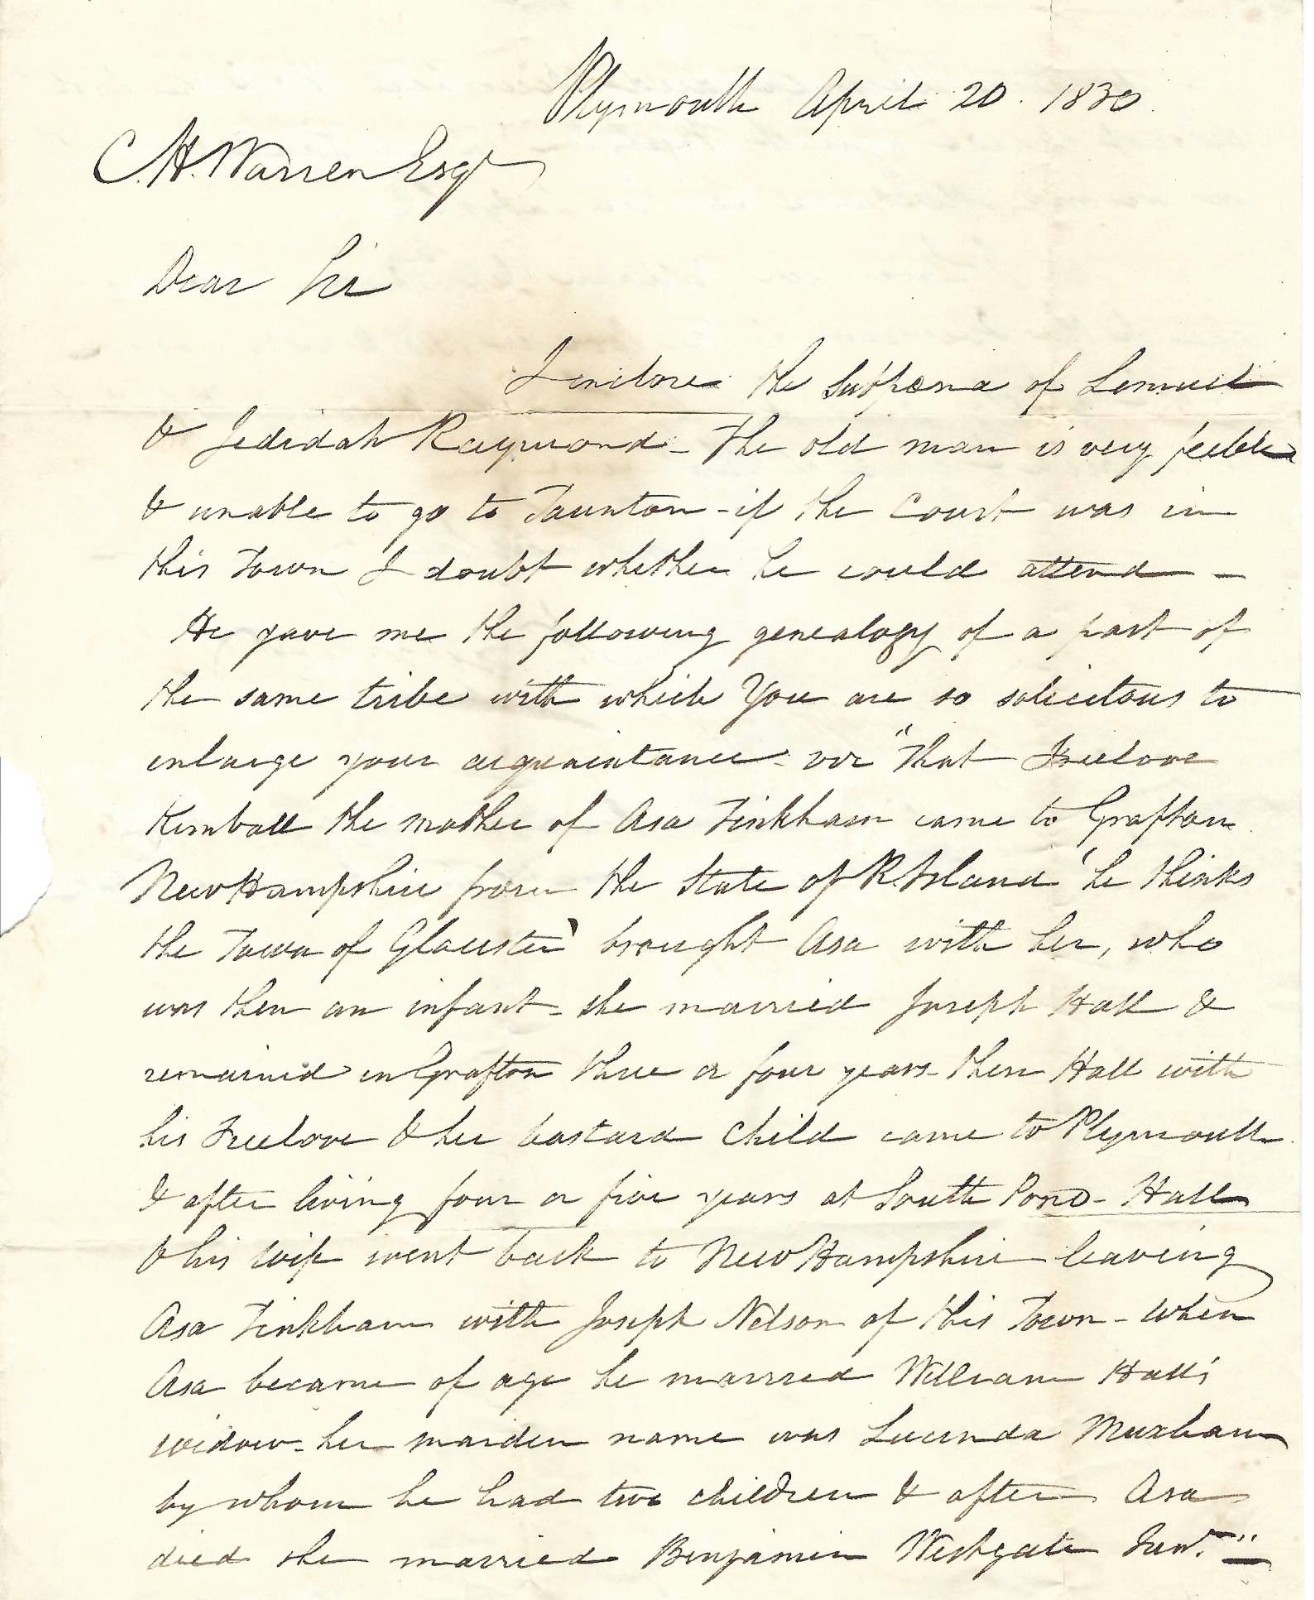 Plymouth April 20. 1830.
C. H. Warren Esqr
Dear Sir
I enclose the Subpoena of Lemuel
& Jedidah Raymond - The old man is very feeble
& unable to go to Taunton - if the Court was in
this Town I doubt whether he could attend -
He gave me the following genealogy of a part of
the same tribe with which You are so solicitous to
enlarge your acquaintance - viz "That Freelove
Kimball the mother of Asa Tinkham came to Grafton
New Hampshire from the State of R. Island 'he thinks
the Town of Glouster' brought Asa with her, who
was then an infant - she married Joseph Hall &
remained in Grafton three or four years - then Hall with
his Freelove & her bastard child came to Plymouth
& after living four or five years at South Pond - Hall
& his wife went back to New Hampshire leaving
Asa Tinkham with Joseph Nelson of this Town - when
Asa became of age he married William Hall's
widow - her maiden name was Lucinda Muxham
by whom he had two children & after Asa
died she married Benjamin Westgate Junr."